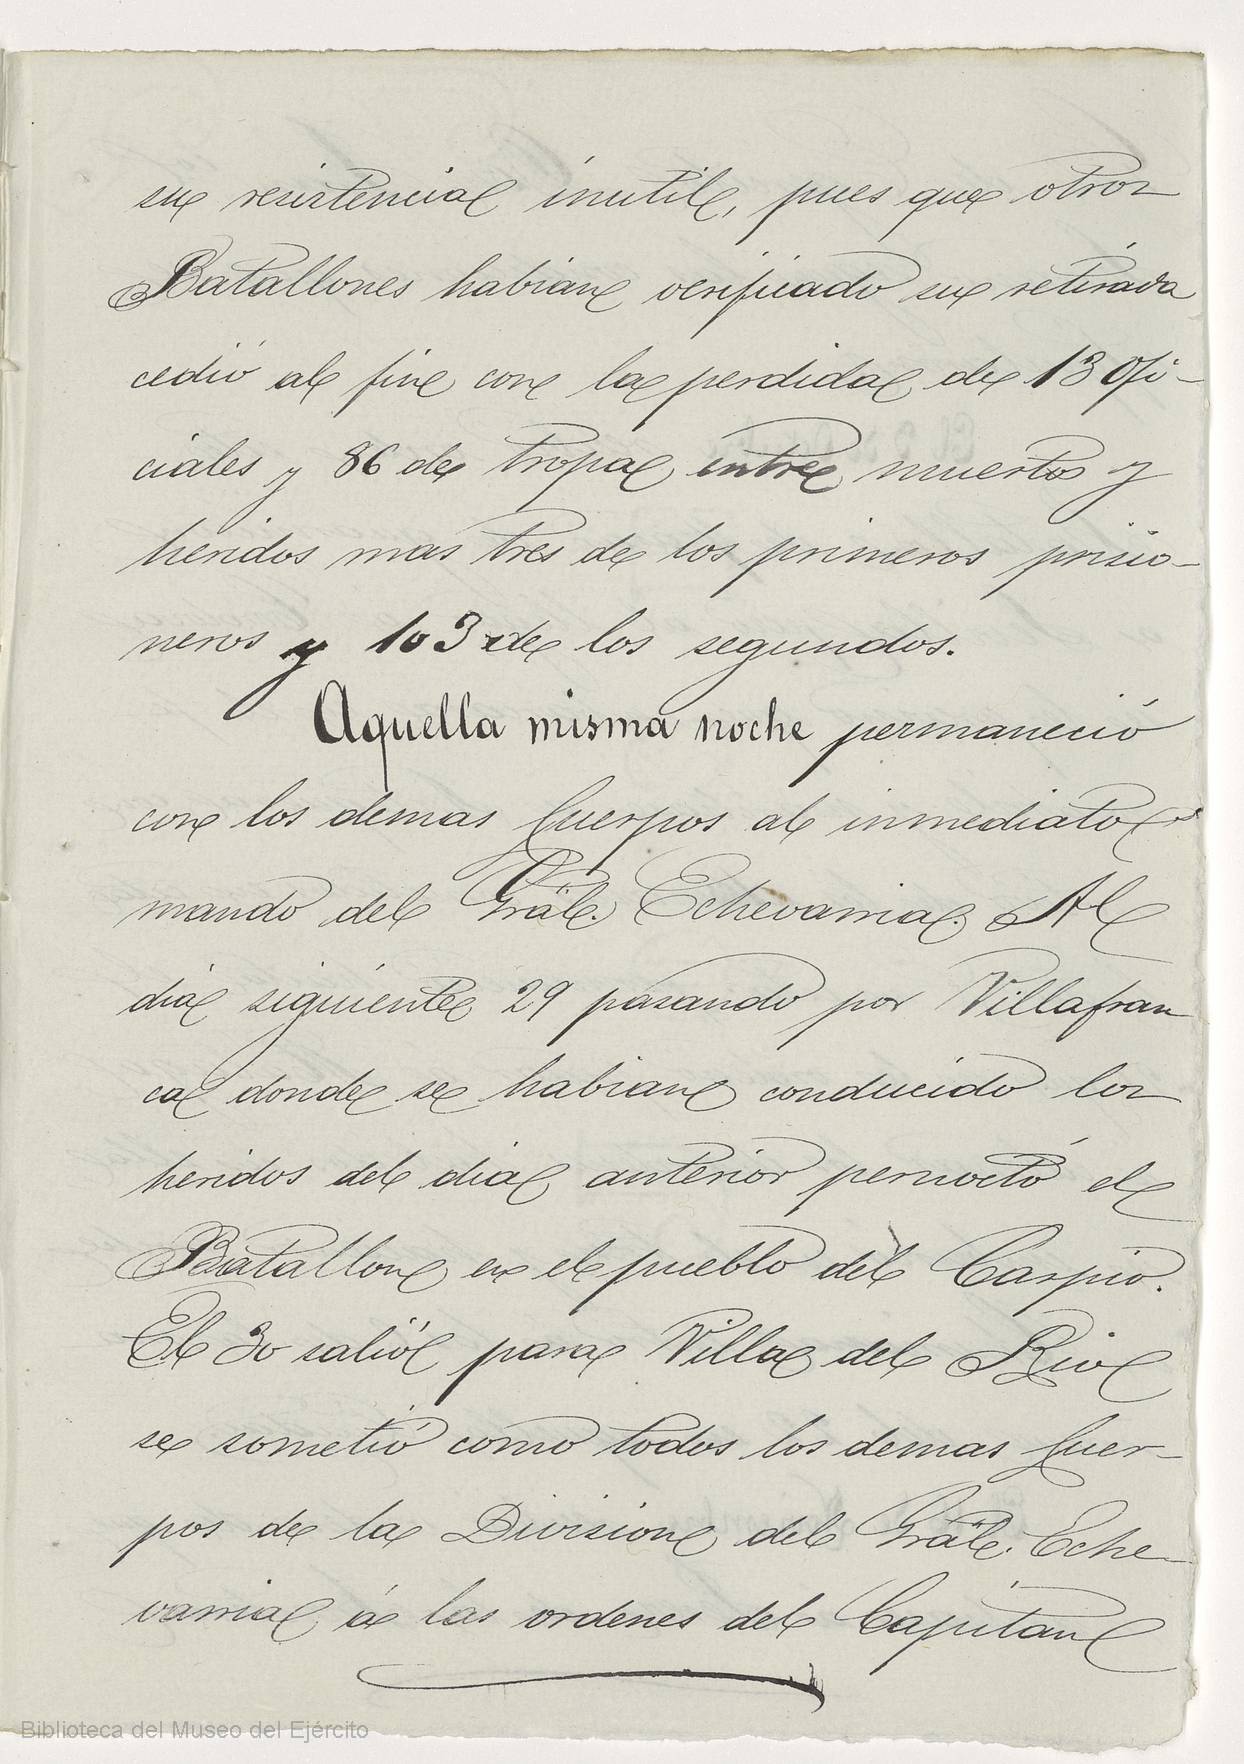 su resistencia inutil, pues que otros
Batallones habian verificado su retirada
cedió al fin con la perdida de 13 Ofi-
ciales y 86 de tropa entre muertos y
heridos mas tres de los primeros prisio-
neros y 103 de los segundos.
Aquella misma noche permaneció
con los demas Cuerpos al inmediato
mando del Gräl. Echevarria. Al
dia siguiente 29 pasando por Villafran
ca donde se habian conducido los
heridos del dia anterior pernoctó el
Batallon en el pueblo del Carpio.
El 30 salió para Villa del Rio
se sometió como todos los demas Cuer-
pos de la Division del Gräl. Eche-
varria á las ordenes del Capitan
Biblioteca del Museo del Ejército